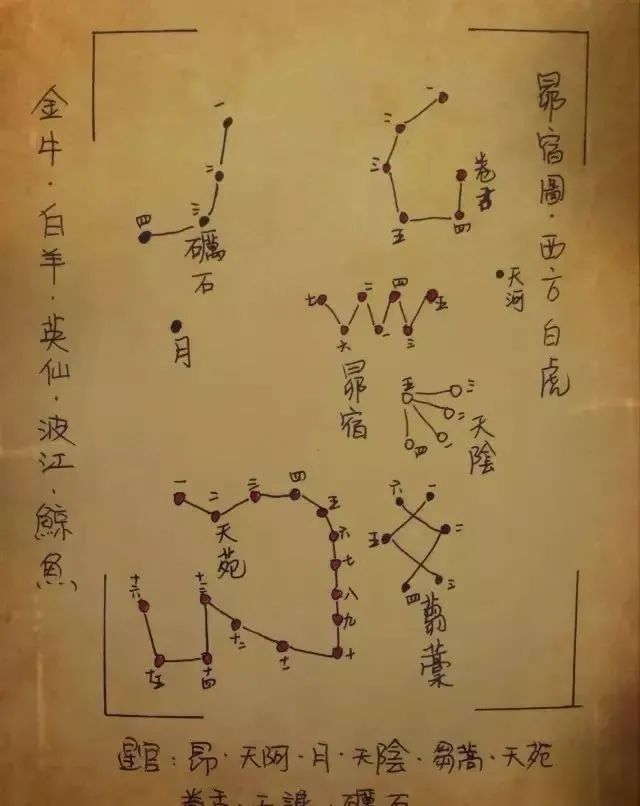 昴宿圖·西方白虎
金牛·白羊·英仙·波江·鯨魚
一
二
三
四
礪石
一
二
三
五
四
卷舌
天河
月
七
六
二
一
四
三
五
昴宿
五
三
二
一
四
天陰
一
二
三
四
五
六
七
八
九
十
十一
十二
十三
十四
十五
十六
天苑
六
一
五
二
四
三
芻藁
星官：昴·天阿·月·天陰·芻蒿·天苑
卷舌·天讒·礪石